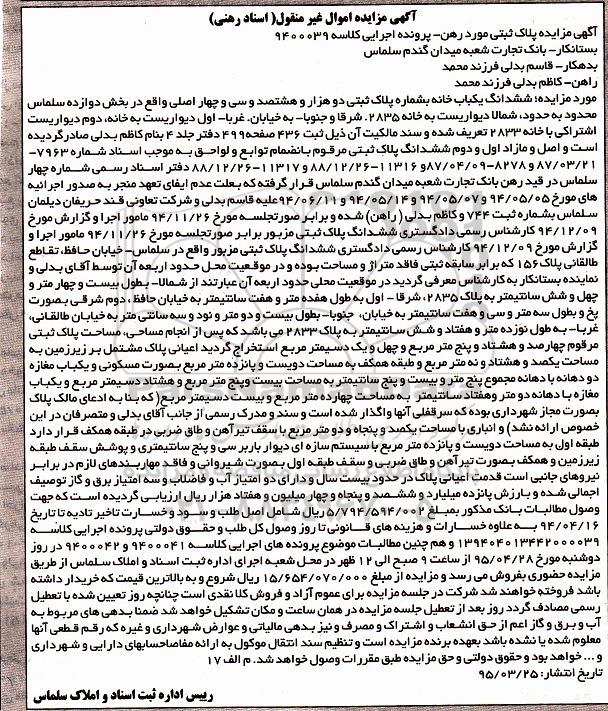 آگهی مزایده اموال غیر منقول( اسناد رهنی)
آگهی مزایده پلاک ثبتی مورد رهن- پرونده اجرایی کلاسه ۹۴۰۰۰۳۹
بستانکار- بانک تجارت شعبه میدان گندم سلماس
بدهکار- قاسم بدلی فرزند محمد
راهن- کاظم بدلی فرزند محمد
مورد مزایده: ششدانگ یکباب خانه بشماره پلاک ثبتی دو هزار و هشتصد و سی و چهار اصلی واقع در بخش دوازده سلماس
محدود به حدود، شمالا دیواریست به خانه ۲۸۳۵. شرقا و جنوبا- به خیابان. غربا- اول دیواریست به خانه، دوم دیواریست
اشتراکی با خانه ۲۸۳۳ تعریف شده و سند مالکیت آن ذیل ثبت ۴۳۶ صفحه ۴۹۹ دفتر جلد ۴ بنام کاظم بدلی صادر گردیده
است و اصل و مازاد اول و دوم ششدانگ پلاک ثبتی مرقوم بانضمام توابع و لواحق به موجب اسناد شماره ۷۹۶۳-
۸۷/۰۳/۲۱ و ۸۲۷۸-۸۷/۰۴/۰۹ و ۱۱۳۱۶-۸۸/۱۲/۲۶ و ۱۱۳۱۷-۸۸/۱۲/۲۶ دفتر اسناد رسمی شماره چهار
سلماس در قید رهن بانک تجارت شعبه میدان گندم سلماس قرار گرفته که بعلت عدم ایفای تعهد منجر به صدور اجرائیه
های مورخ ۹۴/۰۵/۰۵ و ۹۴/۰۵/۰۷ و ۹۴/۰۵/۱۴ و ۹۴/۰۶/۱۱ علیه قاسم بدلی و شرکت تعاونی قند حریفان دیلمان
سلماس بشماره ثبت ۷۴۴ و کاظم بدلی ( راهن) شده و برابر صورتجلسه مورخ ۹۴/۱۱/۲۶ مامور اجرا و گزارش مورخ
۹۴/۱۲/۰۹ کارشناس رسمی دادگستری ششدانگ پلاک ثبتی مزبور برابر صورتجلسه مورخ ۹۴/۱۱/۲۶ مامور اجرا و
گزارش مورخ ۹۴/۱۲/۰۹ کارشناس رسمی دادگستری ششدانگ پلاک ثبتی مزبور واقع در سلماس- خیابان حافظ، تقاطع
طالقانی پلاک ۱۵۶ که برابر سابقه ثبتی فاقد متراژ و مساحت بوده و در موقعیت محل حدود اربعه آن توسط آقای بدلی و
نماینده بستانکار به کارشناس معرفی گردید در موقعیت محلی حدود اربعه آن عبارتند از شمالا- بطول بیست و چهار متر و
چهل و شش سانتیمتر به پلاک ۲۸۳۵، شرقا - اول به طول هفده متر و هفت سانتیمتر به خیابان حافظ، دوم شرقی بصورت
پخ و بطول سه متر و سی و هفت سانتیمتر به خیابان، جنوبا- بطول بیست و دو متر و نود و سه سانتی متر به خیابان طالقانی،
غربا- به طول نوزده متر و هفتاد و شش سانتیمتر به پلاک ۲۸۳۳ می باشد که پس از انجام مساحی، مساحت پلاک ثبتی
مرقوم چهارصد و هشتاد و پنج متر مربع و چهل و یک دسیمتر مربع استخراج گردید اعیانی پلاک مشتمل بر زیرزمین به
مساحت یکصد و هشتاد و نه متر مربع و طبقه همکف به مساحت دویست و پانزده متر مربع بصورت مسکونی و یکباب مغازه
دو دهانه با دهانه مجموع پنج متر و بیست و پنج سانتیمتر به مساحت بیست و پنج متر مربع و هشتاد دسیمتر مربع و یکباب
مغازه با دهانه دو متر و هفتاد سانتیمتر به مساحت چهارده متر مربع و بیست دسیمتر مربع ( که بنا به ادعای مالک پلاک
بصورت مجاز شهرداری بوده که سرقفلی آنها واگذار شده است و سند و مدرک رسمی از جانب آقای بدلی و متصرفان در این
خصوص ارائه نشد) و انباری با مساحت یکصد و پنجاه و دو متر مربع با سقف تیرآهن و طاق ضربی در طبقه همکف قرار دارد
طبقه اول به مساحت دویست و پانزده متر مربع با سیستم سازه ای دیوار باربر سی و پنج سانتیمتری و پوشش سقف طبقه
زیرزمین و همکف بصورت تیرآهن و طاق ضربی و سقف طبقه اول بصورت شیروانی و فاقد مهاربندهای لازم در برابر
نیروهای جانبی است قدمت اعیانی پلاک در حدود بیست سال و دارای دو امتیاز آب و فاضلاب و سه امتیاز برق و گاز توصیف
اجمالی شده و با رزش پانزده میلیارد و ششصد و پنجاه و چهار میلیون و هفتاد هزار ریال ارزیابی گردیده است که جهت
وصول مطالبات بانک مذکور بمبلغ ۵/۷۹۴/۵۹۴/۰۰۲ ریال شامل اصل طلب و سود و خسارت تاخیر تادیه تا تاریخ
۹۴/۰۴/۱۶ به علاوه خسارات و هزینه های قانونی تا روز وصول کل طلب و حقوق دولتی پرونده اجرایی کلاسه
۱۳۹۴۰۴۰۱۳۴۴۲۰۰۰۰۳۹ و هم چنین مطالبات موضوع پرونده های اجرایی کلاسه ۹۴۰۰۰۴۱ و ۹۴۰۰۰۴۲ در روز
دوشنبه مورخ ۹۵/۰۴/۲۸ از ساعت ۹ صبح الی ۱۲ ظهر در محل شعبه اجرای اداره ثبت اسناد و املاک سلماس از طریق
مزایده حضوری بفروش می رسد و مزایده از مبلغ ۱۵/۶۵۴/۰۷۰/۰۰۰ ریال شروع و به بالاترین قیمت که خریدار داشته
باشد فروخته خواهد شد شرکت در جلسه مزایده برای عموم آزاد و فروش کلا نقدی است چنانچه روز تعیین شده با تعطیل
رسمی مصادف گردد روز بعد از تعطیل جلسه مزایده در همان ساعت و مکان تشکیل خواهد شد ضمنا بدهی های مربوط به
آب و برق و گاز اعم از حق انشعاب و اشتراک و مصرف و نیز بدهی مالیاتی و عوارض شهرداری و غیره که رقم قطعی آنها
معلوم شده یا نشده باشد بعهده برنده مزایده است و تنظیم سند انتقال موکول به ارائه مفاصاحسابهای دارایی و شهرداری
و ... خواهد بود و حقوق دولتی و حق مزایده طبق مقررات وصول خواهد شد. م الف ۱۷
تاریخ انتشار: ۹۵/۰۳/۲۵
رییس اداره ثبت اسناد و املاک سلماس